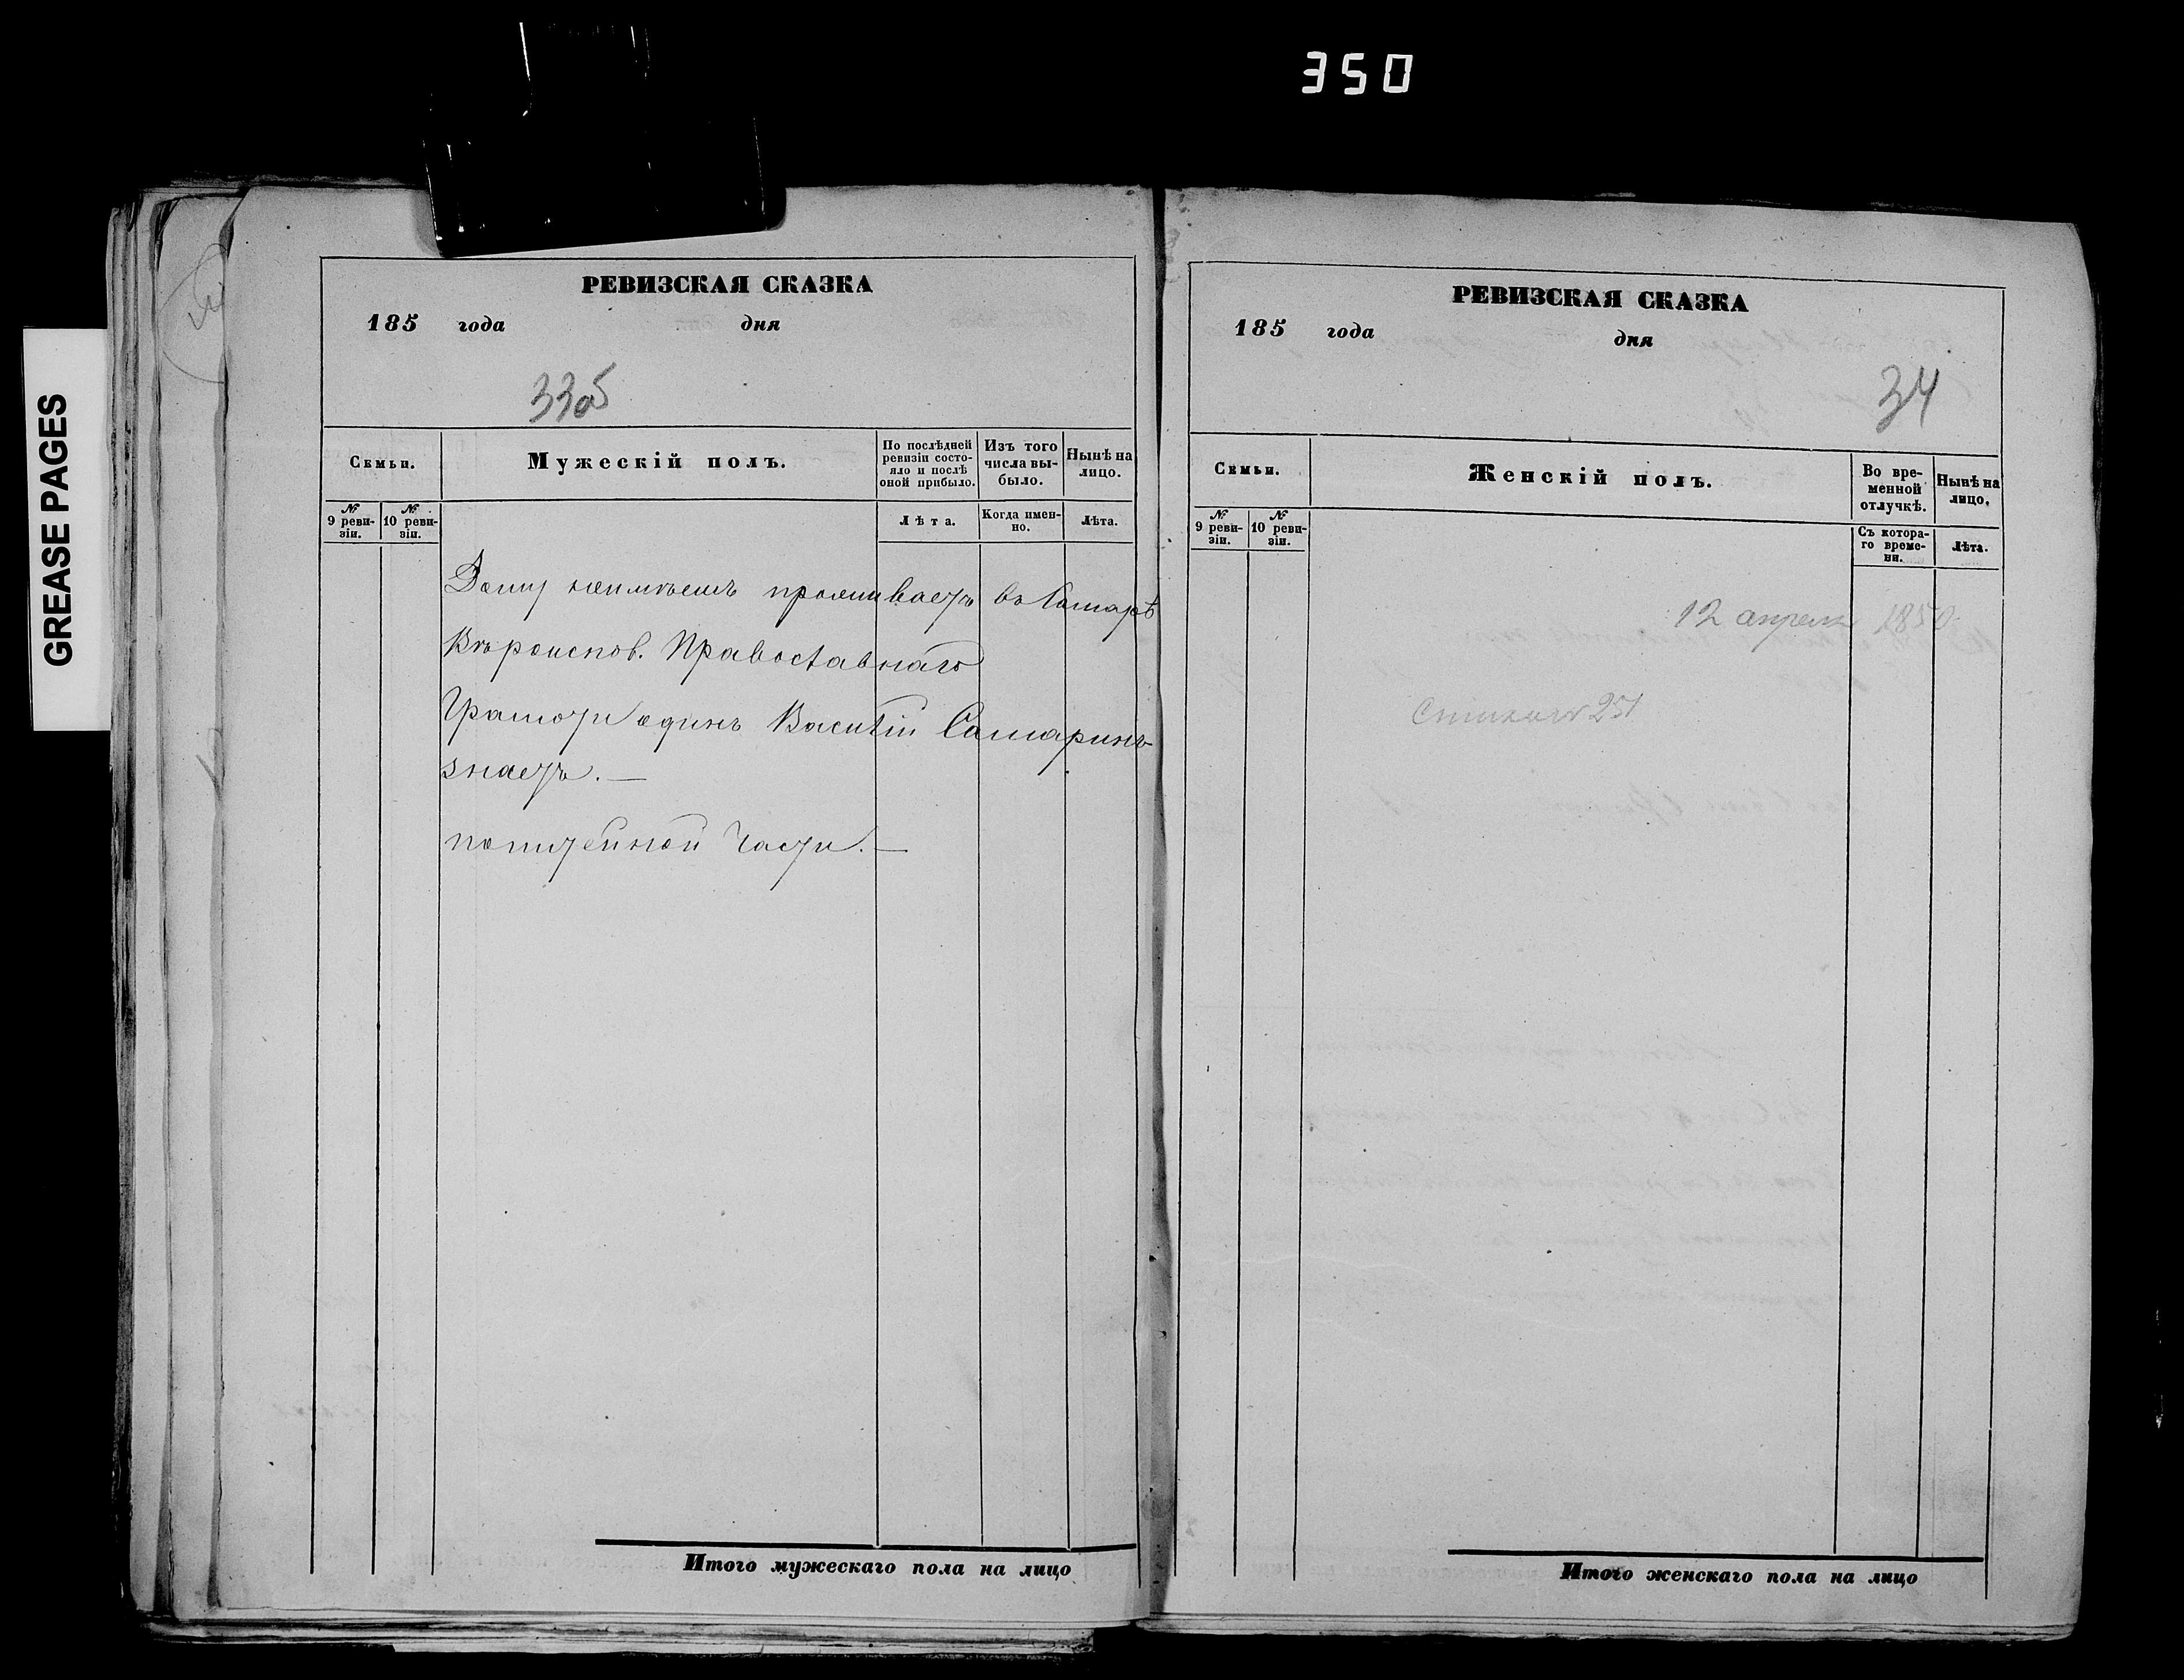 350
GREASE PAGES
РЕВИЗСКАЯ СКАЗКА
185 года дня
33об
Семьи.
Мужескій полъ.
По послѣдней ревизіи состо-
яло и послѣ оной прибыло.
Изъ того числа вы-
было.
Нынѣ на лицо.
№ 9 реви-
зіи.
№ 10 реви-
зіи.
Лѣта.
Когда имен-
но.
Лѣта.
Дому неимѣетъ проживаетъ въ Самарѣ
Вѣроиспов. Православнаго
Грамоти одинъ Василій Самаринъ
знаетъ.—
полицейной Части.—
Итого мужескаго пола на лицо
РЕВИЗСКАЯ СКАЗКА
185 года дня
34
Семьи.
Женскій полъ.
Во вре-
менной отлучкѣ.
Нынѣ на лицо.
№ 9 реви-
зіи.
№ 10 реви-
зіи.
Съ котора-
го време-
ни.
Лѣта.
12 апреля 1850
251
Итого женскаго пола на лицо